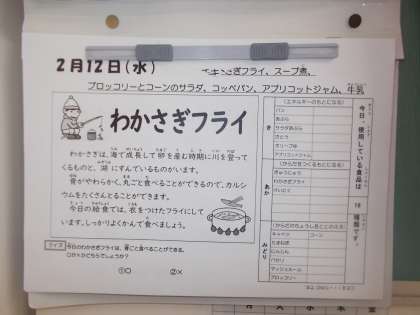 2月12日(水)
わかさぎフライ、スープ煮、
ブロッコリーとコーンのサラダ、コッペパン、アプリコットジャム、牛乳
わかさぎフライ
わかさぎは、海で成長して卵を産む時期に川を登って
くるものと、湖にすんでいるものがいます。
骨がやわらかく、丸ごと食べることができるので、カルシ
ウムをたくさんとることができます。
今日の給食では、衣をつけたフライにして
います。しっかりよくかんで食べましょう。
クイズ
今日のわかさぎフライは、骨ごと食べることができる。
○か×かどちらでしょうか?
①○ ②×
(エネルギーのもとになる)
き
パン
あぶら
サラダあぶら
さとう
オリーブ油
アプリコットジャム
(からだをつくるもとになる)
あか
ぎゅうにゅう
わかさぎフライ
(からだのちょうしをととのえる)
みどり
キャベツ コーン
たまねぎ
にんじん
パセリ
マッシュルーム
ブロッコリー
今日、使用している食品は 18 種類です。